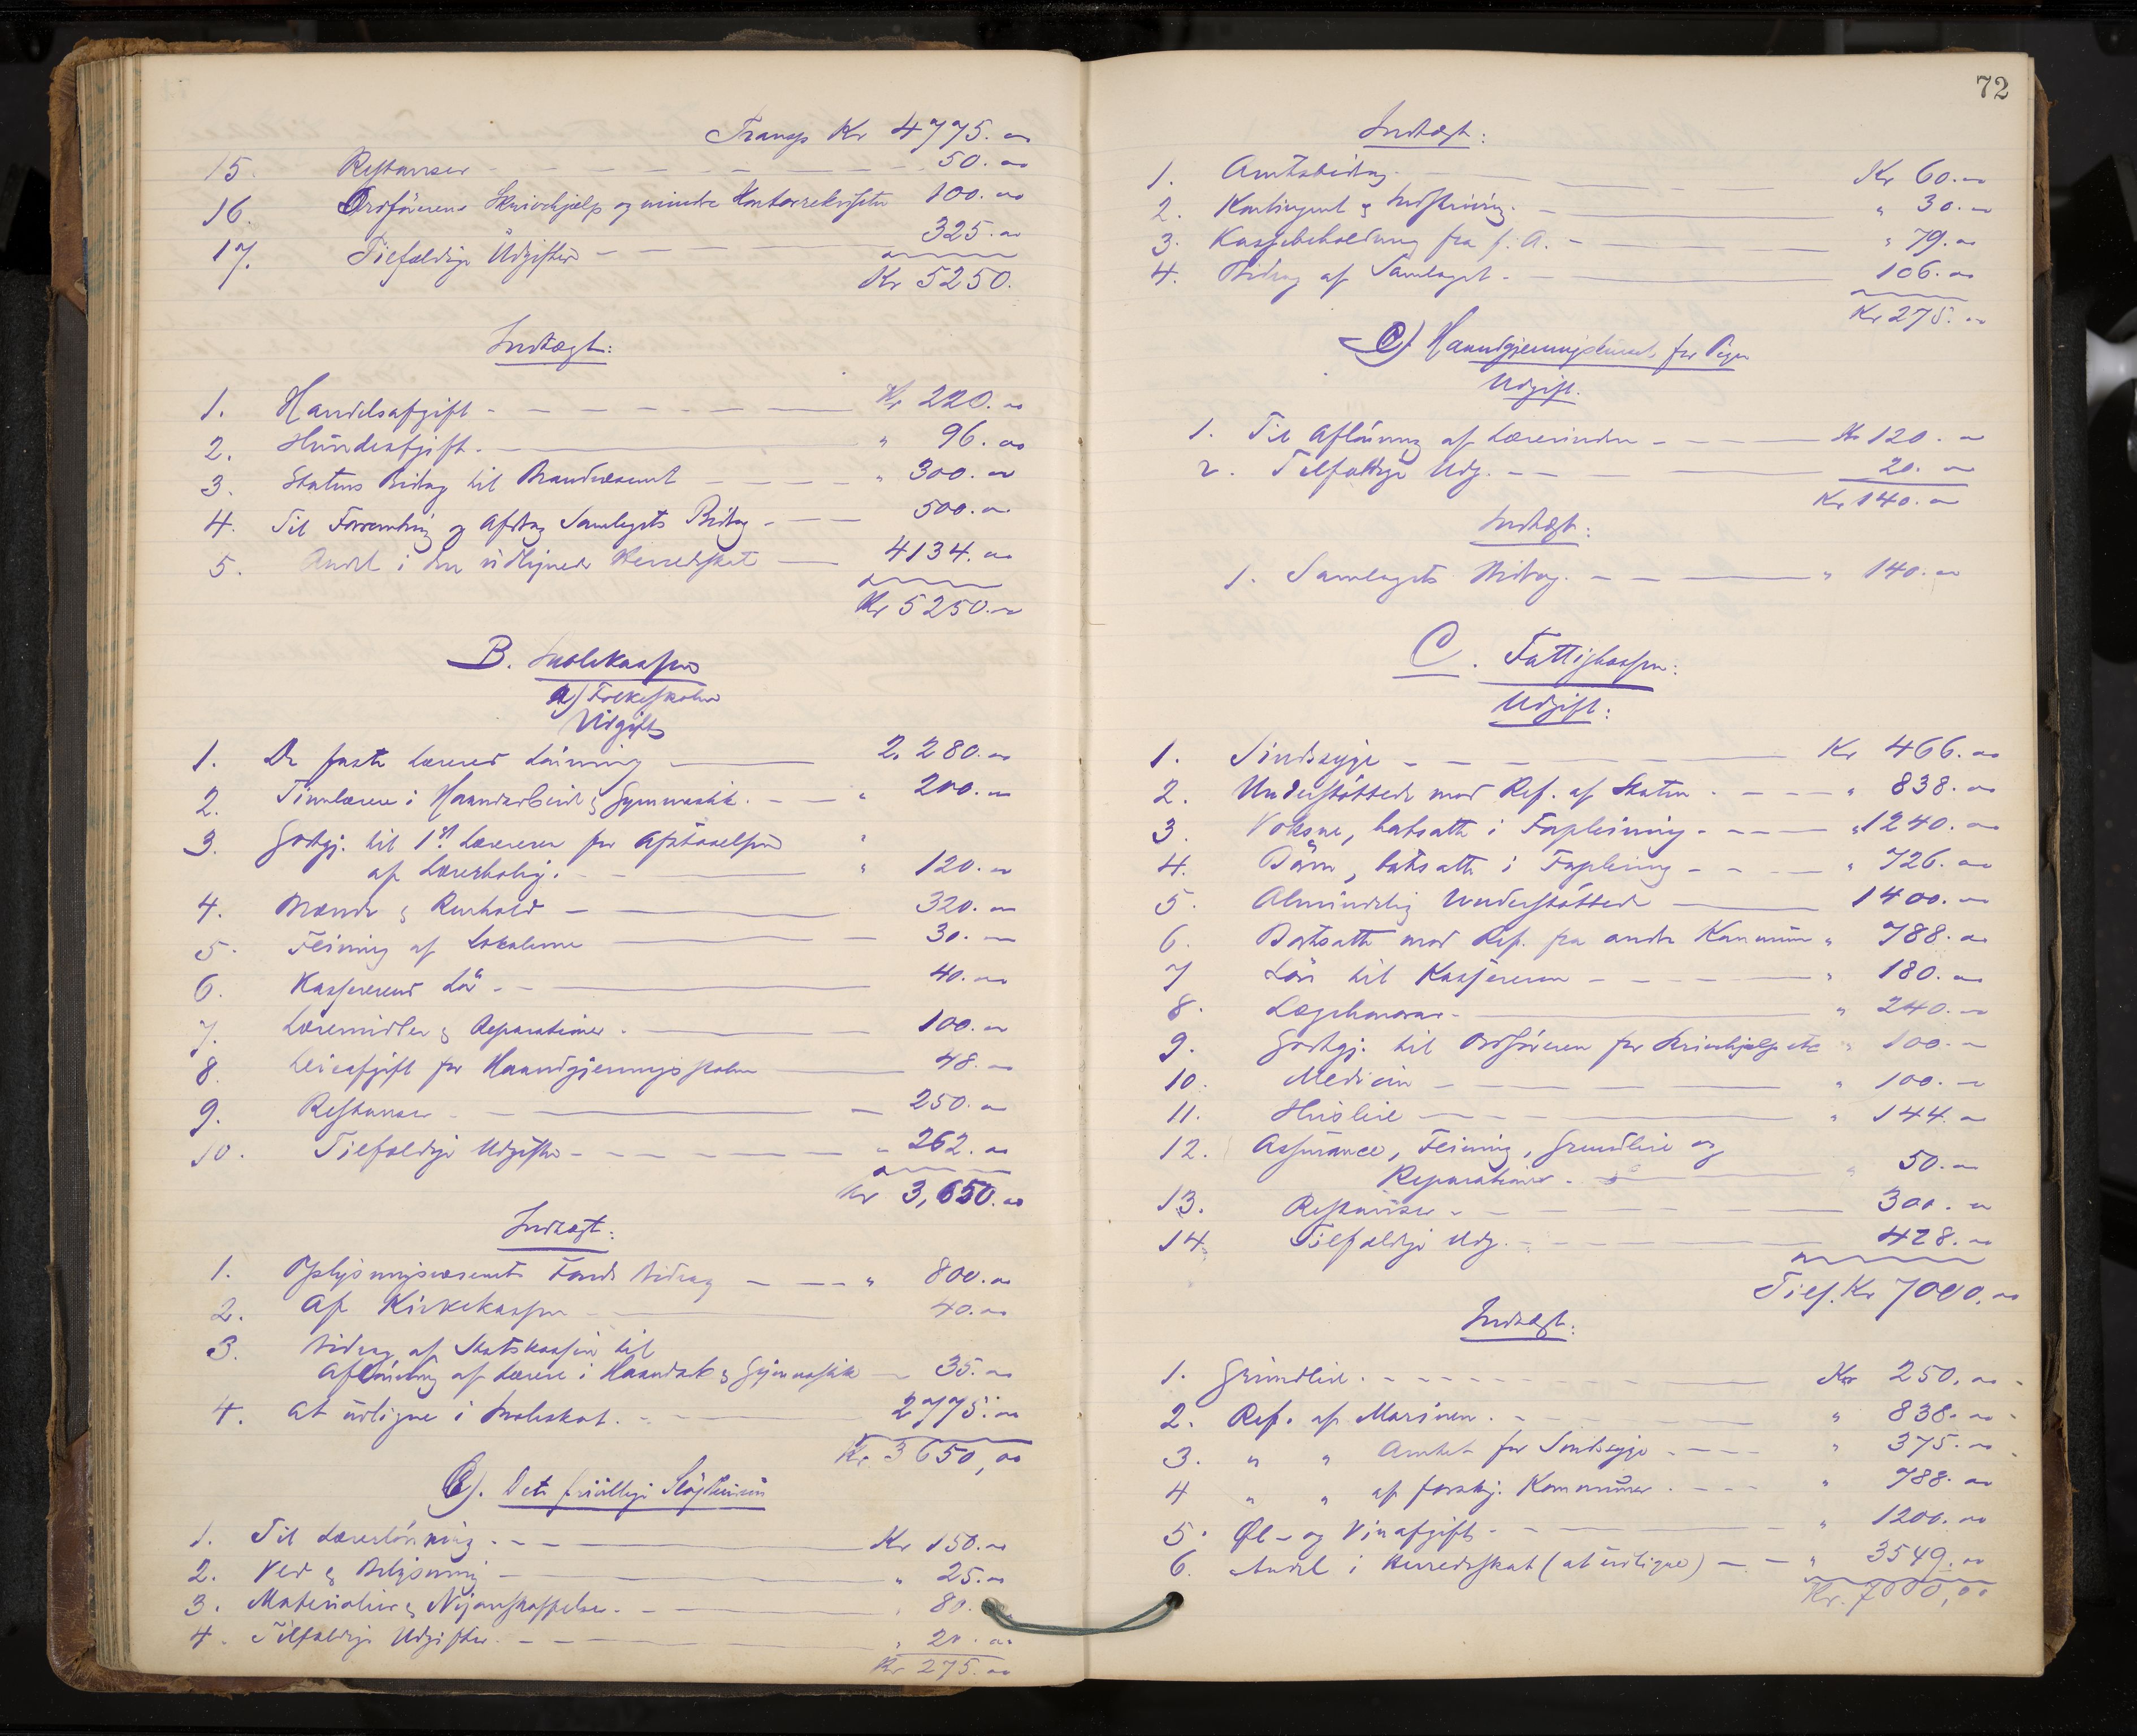 Transp Kr 4775.00
15. Restanser 50.00
16. Ordförerens Skrivehjælp og mindre Kontorrekvisiter 100.00
17. Tilfældige Udgifter 325.00
Kr 5250.
Indtægt:
1. Handelsafgift Kr 220.00
2. Hundeafgift " 96.00
3. Statens Bidrag til Brandvæsenet " 300.00
4. Til Forrentning og Afdrag Samlagets Bidrag 500.00
5. Andel i den udlignede Herredsskat 4134.00
Kr 5250.00
B. Skolekassen
a) Folkeskolen
Udgift
1. De faste Læreres Lönning 2.280.00
2. Timelærere i Haandarbeide & Gymnastik " 200.00
3. Godtgj. til 1st Læreren for Afstaaelsen "
af Lærerbolig. " 120.00
4. Brænde & Renhold 320.00
5. Feining af Lokalerne 30.00
6. Kassererens Lön 40.00
7. Læremidler & Reparationer 100.00
8. Leieafgift for Haandgjerningsskolen 48.00
9. Restanser 250.00
10. Tilfældige Udgifter " 262.00
Kr 3,650.00
Indtægt:
1. Oplysningsvæsenets Fonds Bidrag " 800.00
2. Af Kirkekassen 40.00
3. Bidrag af Statskassen til
Aflönning af Lærere i Haandarb & Gymnastik 35.00
4. At udligne i Skoleskat. 2775.00
Kr. 3650,00
b). Det frivillige Slöjd
1. Til Lærerlönning Kr 150.00
2. Ved & Belysning " 25.00
3. Materialier & Nyanskaffelser. " 80.
4. Tilfældige Udgifter " 20.00
Kr 275.00
72
Indtægt:
1. Amtsbidrag Kr 60.00
2. Kontingent & Indskrivning. " 30.00
3. Kassebeholdning fra f. A. " 79.00
4. Bidrag af Samlaget 106.00
Kr 275.00
c) Haandgjerningskursus for Piger
Udgift.
1. Til Aflönning af Lærerinden Kr 120.00
2. Tilfældige Udg. 20.00
Kr 140.00
Indtægt:
1. Samlagets Bidrag. " 140.00
C. Fattigkassen:
Udgift:
1. Sindssyge Kr 466.00
2. Understöttede mod Ref. af Staten " 838.00
3. Voksne, bortsatte i Forpleining " 1240.00
4. Börn, bortsatte i Forpleining " 726.00
5. Almindelig Understöttede 1400.00
6. Bortsatte mod Ref. fra andre Kommuner " 788.00
7 Lön til Kassereren " 180.00
8. Lægehonorar " 240.00
9. Godtgj. til Ordföreren for Skrivehjælp etc " 100.00
10. Medicin " 100.00
11. Husleie " 144.00
12. Assurance, Feining, Grundleie og
Reparationer " 50.00
13. Restanser 300.00
14. Tilfældige Udg. 428.00
Tils. Kr 7000.00
Indtægt:
1. Grundleie Kr 250.00
2. Ref. af Marinen. " 838.00
3. " " Amtet for Sindssyge " 375.00
4 " " af forskj. Kommuner " 788.00
5. Øl- og Vinafgift " 1200.00
6. Andel i Herredsskat (at udligne) " 3549.00
Kr. 7000,00